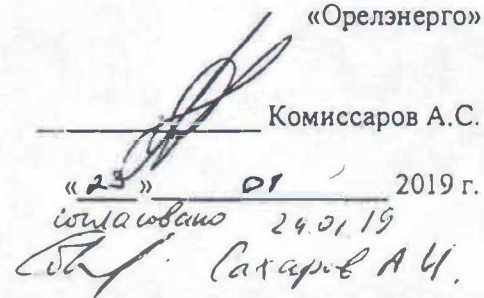 «Орелэнерго»
Комиссаров А.С.
«23» 01 2019 г.
согласовано 24.01.19
Сахаров А И.